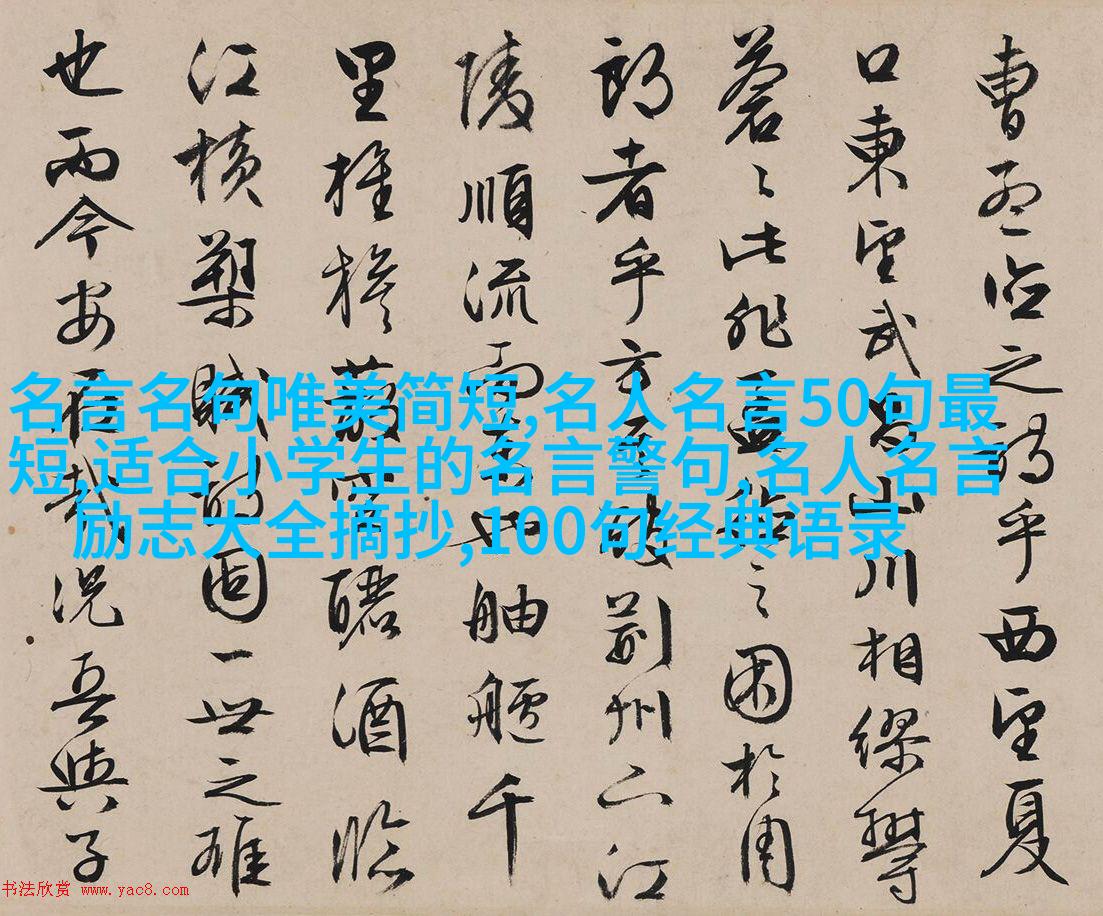 曹孟德之詩乎西望夏
口東望武昌山川相繆鬱
蒼〻此非孟德之困於周
郎者乎方其破荊州下江
陵順流而東也舳艫千
里旌旗蔽空釃酒臨
江橫槊賦詩固一世之雄
也而今安在哉況吾與子
名言名句唯美简短,名人名言50句最
短,适合小学生的名言警句,名人名言
励志大全摘抄,100句经典语录
书法欣赏 www.yac8.com